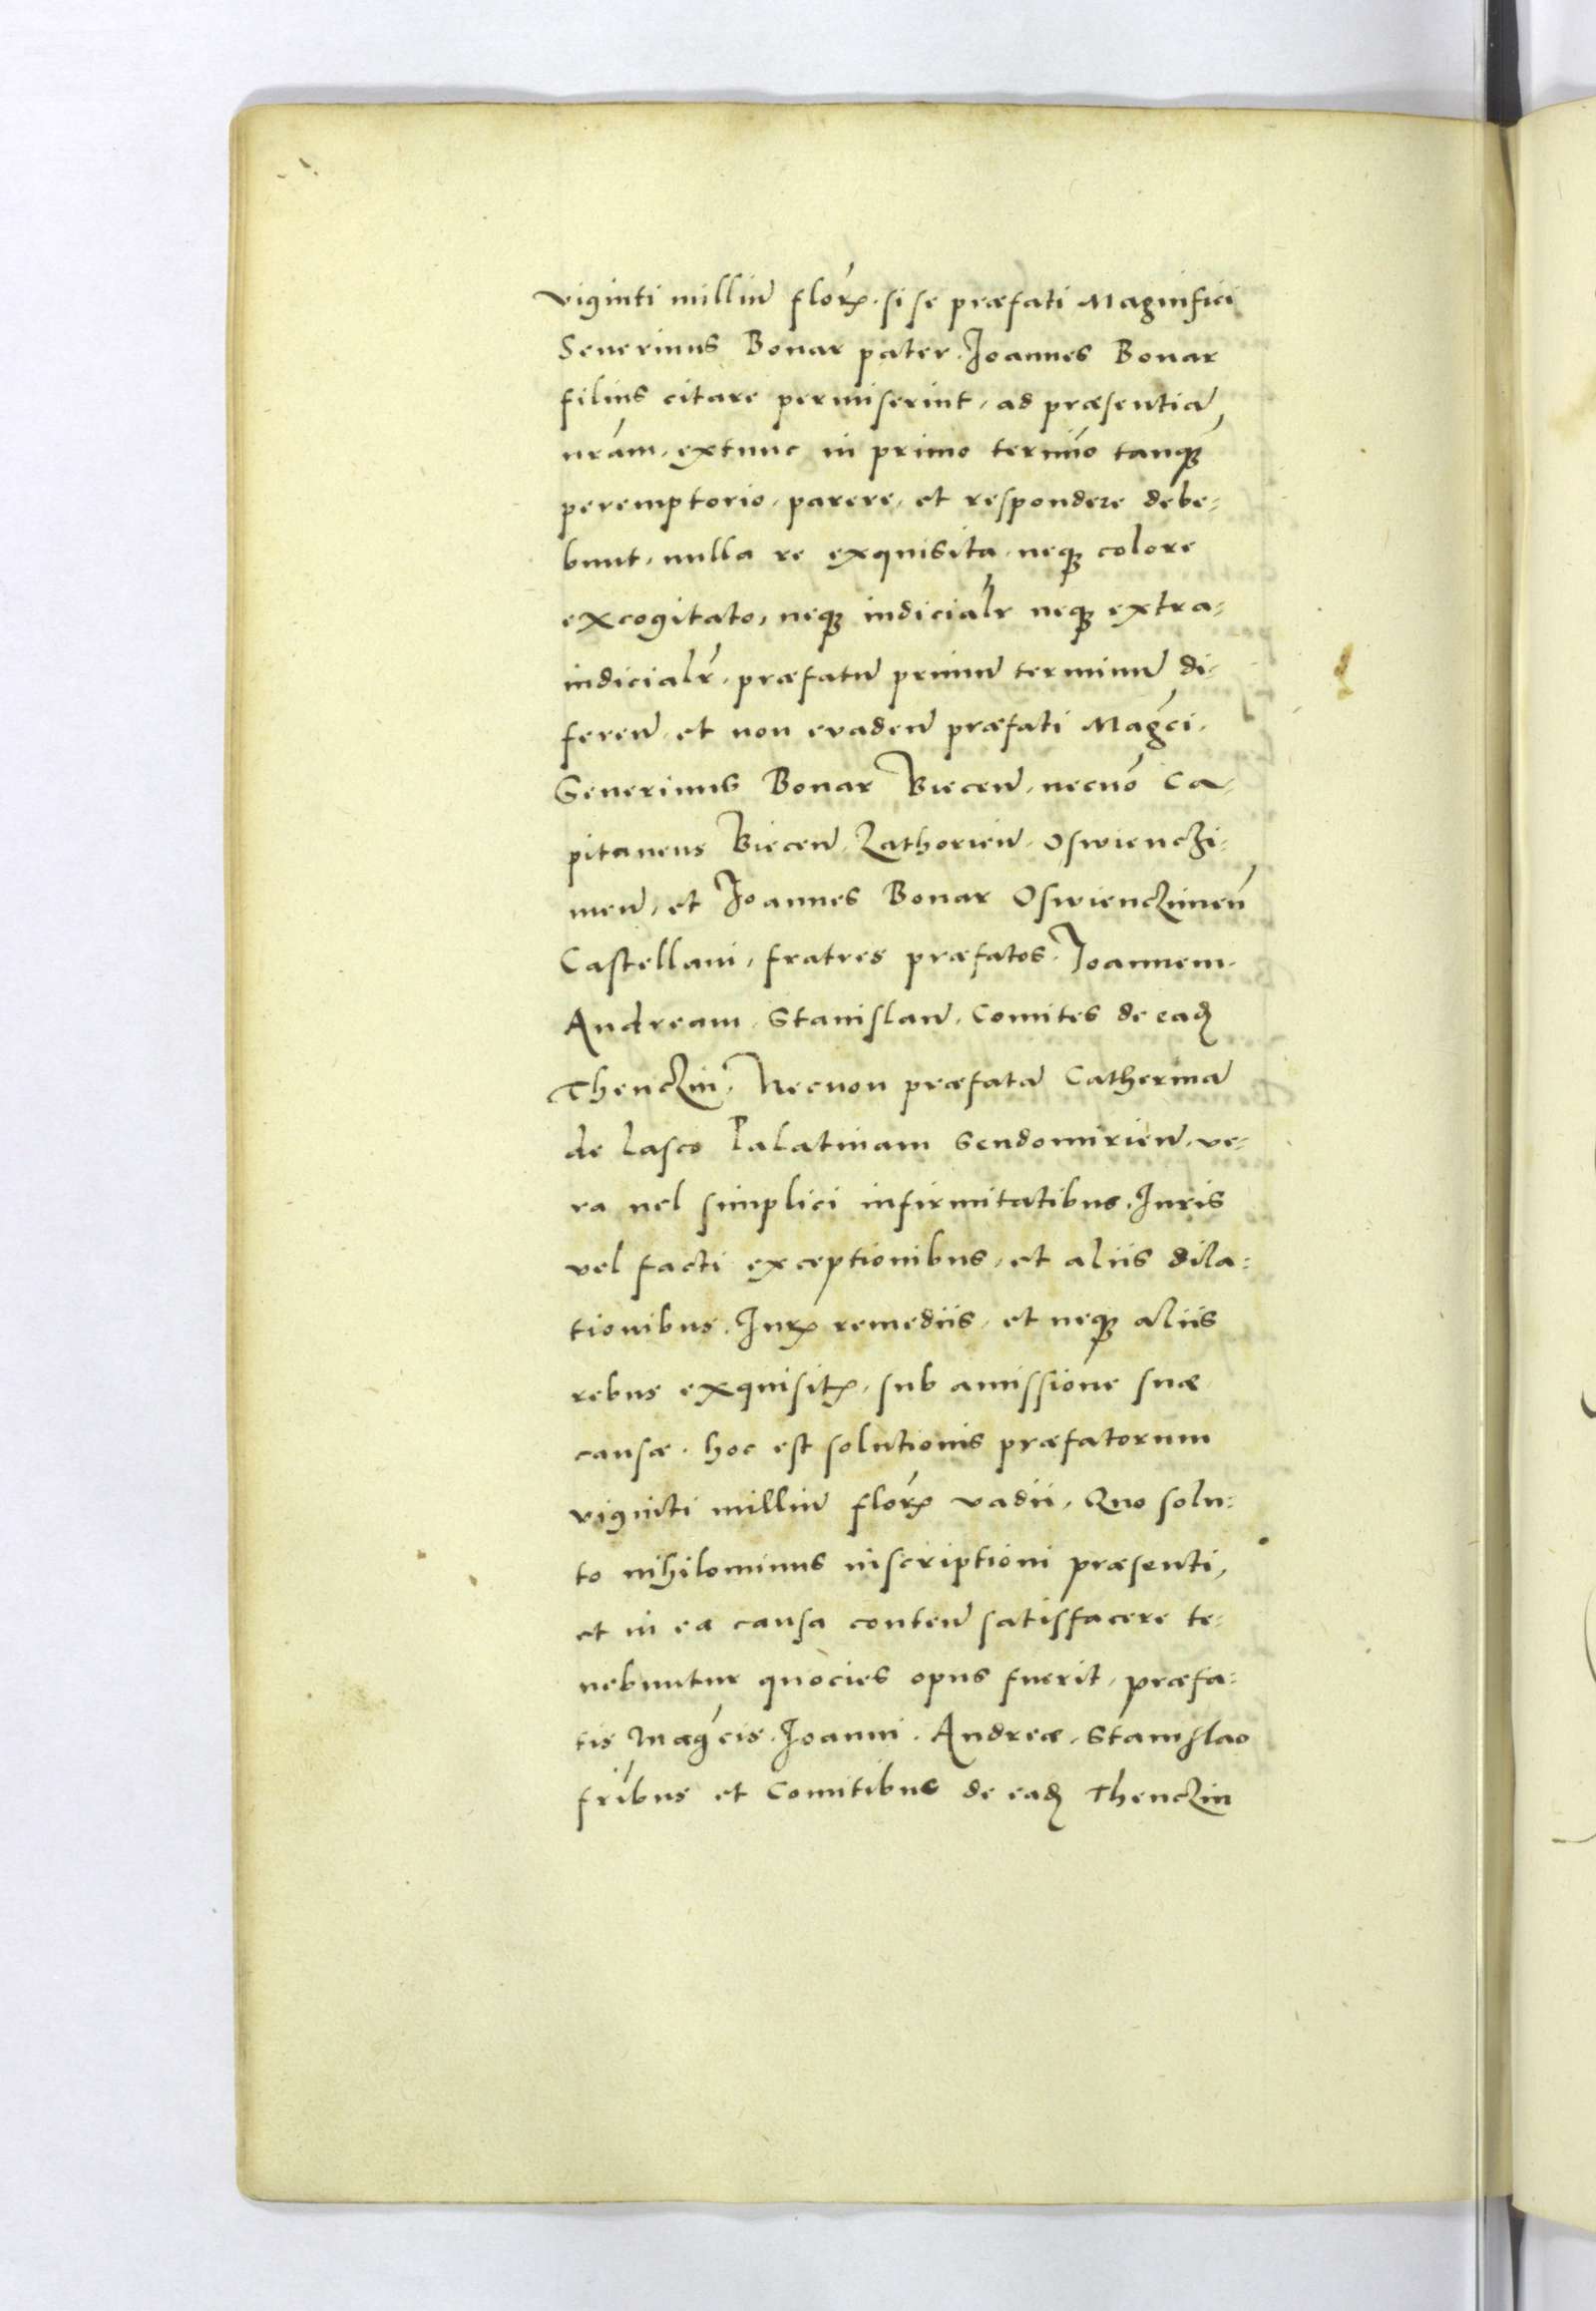 viginti milliũ flor̃ꝝ. si se præfati Magnifici
Seuerinus Bonar pater. Joannes Bonar
filius citare permiserint, ad præsentiã
nrãm, extunc in primo termĩo tanqȝ
peremptorio, parere, et respondere debe=
bunt, nulla re exquisita, neqȝ colore
excogitato, neqȝ iudicialr neqȝ extra=
iudicialr̃, præfatũ primũ terminũ di=
fereñ, et non euadeñ præfati Mag̃ci.
Seuerinus Bonar Bieceñ, necnõ Ca=
pitaneus Bieceñ, Zathorieñ, Oswienczi=
meñ, et Joannes Bonar Oswienczimeñ
Castellani, fratres præfatos. Joannem.
Andream. Stanislaũ. Comites de eadȝ
Thenczin, Necnon præfatã Catherinã
de Lasco Palatinam Sendomirieñ, ve=
ra uel simplici infirmitatibus. Juris
vel facti exceptionibus, et aliis dila=
tionibus. Jurꝝ remediis, et neqȝ aliis
rebus exquisitꝝ, sub amissione suæ
causæ. hoc est solutionis præfatorum
viginti milliũ flor̃ꝝ vadii, Quo solu=
to nihilominus inscriptioni præsenti,
et in ea causa conteñ satisfacere te=
nebuntur quocies opus fuerit, præfa=
tis Mag̃cis. Joanni. Andreæ. Stanislao
fr̃ibus et Comitibus de eadȝ Thenczin